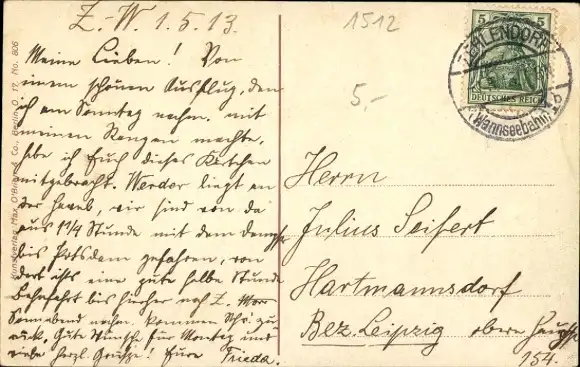 Z.-W. 1.5.13.
1512
5.-
Meine Lieben! Von
einem schönen Ausflug, den
ich am Sonntag nachm. mit
meinen Rangen machte,
habe ich Euch dieses Kärtchen
mitgebracht. Werder liegt an
der Havel, wir sind von da
aus 1¼ Stunde mit dem Dampfer
bis Potsdam gefahren, von
dort ists eine gute halbe Stunde
Bahnfahrt bis hierher nach Z.
Sonnabend nachm. kommen zu-
rück. Gute Wünsche für Montag und
viele herzl. Grüße! Eure Frieda.
Kunstverlag Max O'Brien & Co., Berlin O. 17. No. 606
5 5
DEUTSCHES REICH
ZEHLENDORF
(Wannseebahn)
Herrn
Julius Seifert
Hartmannsdorf
Bez. Leipzig obere
154.